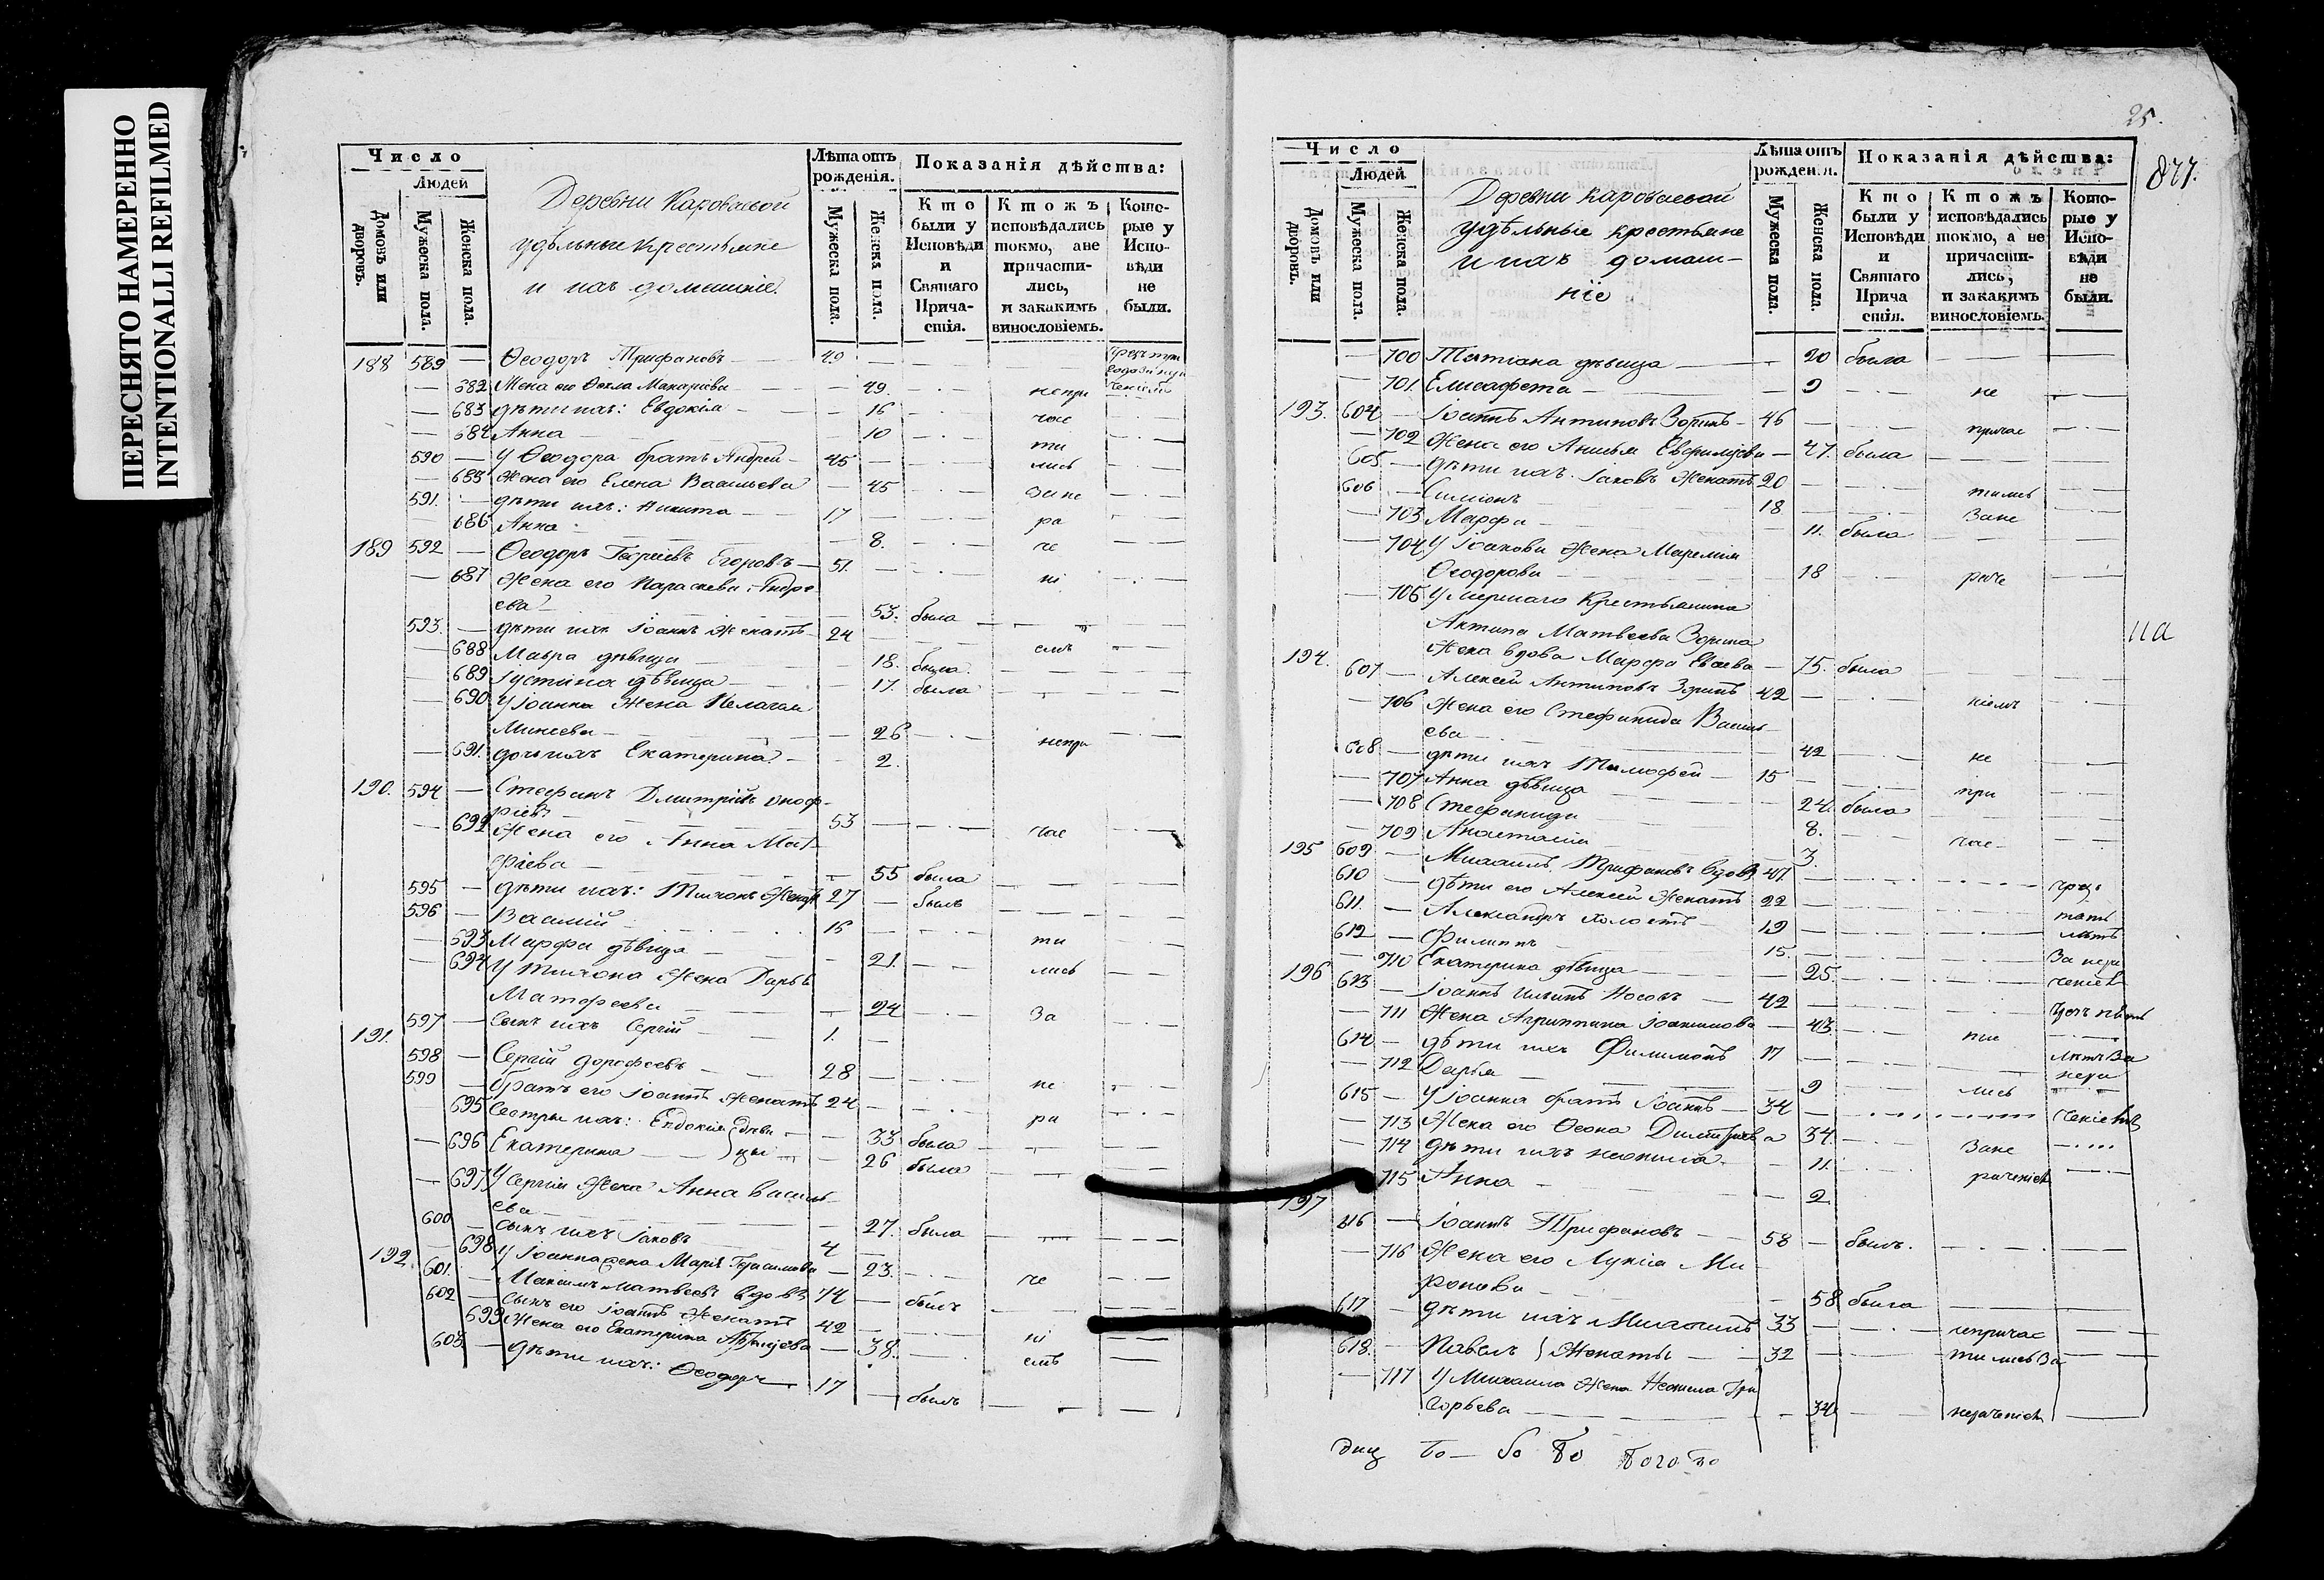 ПЕРЕСНЯТО НАМЕРЕННО
INTENTIONALLI REFILMED
Число
Людей
Домовъ или дворовъ.
Мужеска пола.
Женска пола.
Деревни Короваевой
удѣльные крестьяне
и ихъ домашніе.
Лѣта отъ рожденія.
Мужеска пола.
Женска пола.
Показанія дѣйства:
Кто были у Исповѣди и Святаго Прича-стія.
Ктожъ исповѣдались токмо, а не причасти-лись, и закакимъ винословіемъ.
Кото-рые у Испо-вѣди не были.
188 589 — Ѳеодоръ Трифановъ 49
— 682 Жена его Ѳекла Макариева — 49. непри
— 683 дѣти ихъ: Евдокія — 16 час
— 684 Анна — 10 ти
590 — У Ѳеодора братъ Андрей 45 — лись
— 685 Жена его Елена Васильева — 45 за не
591. — дѣти ихъ: Никита 17 — ра
— 686 Анна — 8. че
189 592 — Ѳеодоръ Георгіевъ Егоровъ 51. — ні
— 687 Жена его Параскева Андре
ева — 53. была
593. — дѣти ихъ Іоаннъ Женатъ 24 — емъ
— 688 Мавра дѣвица — 18. была.
— 689 Іустина дѣвица — 17. была
— 690 У Іоанна Жена Пелагея
Минеева — 26 непри
— 691. дочь ихъ Екатерина — 2.
190. 594 — Стефанъ Дмитріевъ Оноф-
ріевъ 53 — час
— 692 Жена его Анна Мат
фіева — 55 была
595 — дѣти ихъ: Тихонъ Женатъ 27 — былъ
596 — Василій 16 — ти
— 693 Марфа дѣвица — 21. лись
— 694 У Тихона Жена Дарья
Матфеева — 24 За
597 — Сынъ ихъ Сергій 1. —
191. 598 — Сергій Дорофеевъ 28 — не
599 — братъ его Іоаннъ Женатъ 24 — ра
— 695 Сестры ихъ: Евдокія } дѣви — 33 была
— 696 Екатерина } цы — 26 была
— 697 У Сергія Жена Анна Василь
ева — 27. была
600 — сынъ ихъ Іаковъ 4 —
— 698 У Іоанна жена Марія Герасимова — 23. че
192. 601. — Максимъ Матвеевъ вдовъ 74 — былъ
602 — сынъ его Іоаннъ Женатъ 42 — ні
699 Жена его Екатерина — 38. емъ
603. — дѣти ихъ: Ѳеодоръ 17 — былъ
25.
877.
Число
Людей
Домовъ или дворовъ.
Мужеска пола.
Женска пола.
Деревни Короваевой
удѣльные крестьяне
и ихъ домаш-
ніе
Лѣта отъ рожденія.
Мужеска пола.
Женска пола.
Показанія дѣйства:
Кто были у Исповѣди и Святаго Прича стія.
Ктожъ исповѣдались токмо, а не причасти-лись, и закакимъ винословіемъ.
Кото-рые у Испо-вѣди не были.
— 700 Татіана дѣвица — 20 была
— 701. Елисафета — 9 не
193. 604 — Іоаннъ Антиповъ Зоринъ 46 — причас
— 702 Жена его Анисья — 47. была
605 — дѣти ихъ. Іаковъ Женатъ 20 — тились
606 — Симіонъ 18 — Зане
— 703 Марфа — 11. была
— 704 У Іакова Жена
Ѳеодорова — 18 раче
— 705 Умершаго Крестьянина
Антипа Матвеева Зорина
Жена вдова Марфа — 75. была
194. 607 — Алексей Антиповъ Зоринъ 42 — ніемъ
— 706 Жена его Стефанида Василь
ева — 42 не
608 — дѣти ихъ Тимофей 15 — при
— 707 Анна дѣвица — 24. была
— 708 Стефанида — 8. час
— 709 Анастасія — 3.
195 609 — Михаилъ Трифановъ вдовъ 47. —
610 — дѣти его Алексей Женатъ 22 —
611. — Александръ холостъ 19 — лѣтъ
612 — Филиппъ 15. — За нера
— 710 Екатерина дѣвица — 25. ченіемъ
196 613 — Іоаннъ Ильинъ Носовъ 42 —
— 711 Жена Агриппина — 43.
614 — дѣти ихъ Филимонъ 17 — лѣтъ За
— 712 Дарья — 9 лись нера
615 — У Іоанна братъ Іоаннъ 34 — ченіемъ
— 713 Жена его Димитріева 34. Зане
— 714 дѣти ихъ — 11. раченіемъ
715 Анна — 2
197 616 — Іоаннъ Трифановъ 58 — былъ.
— 716 Жена его Лукія Ми
ронова — 58 была
617 — дѣти ихъ Михаилъ 33 — непричас
618. — Павелъ } Женаты 32 — тились За
— 717 У Михаила Жена Неонила Гри
горьева — 34 нераченіемъ